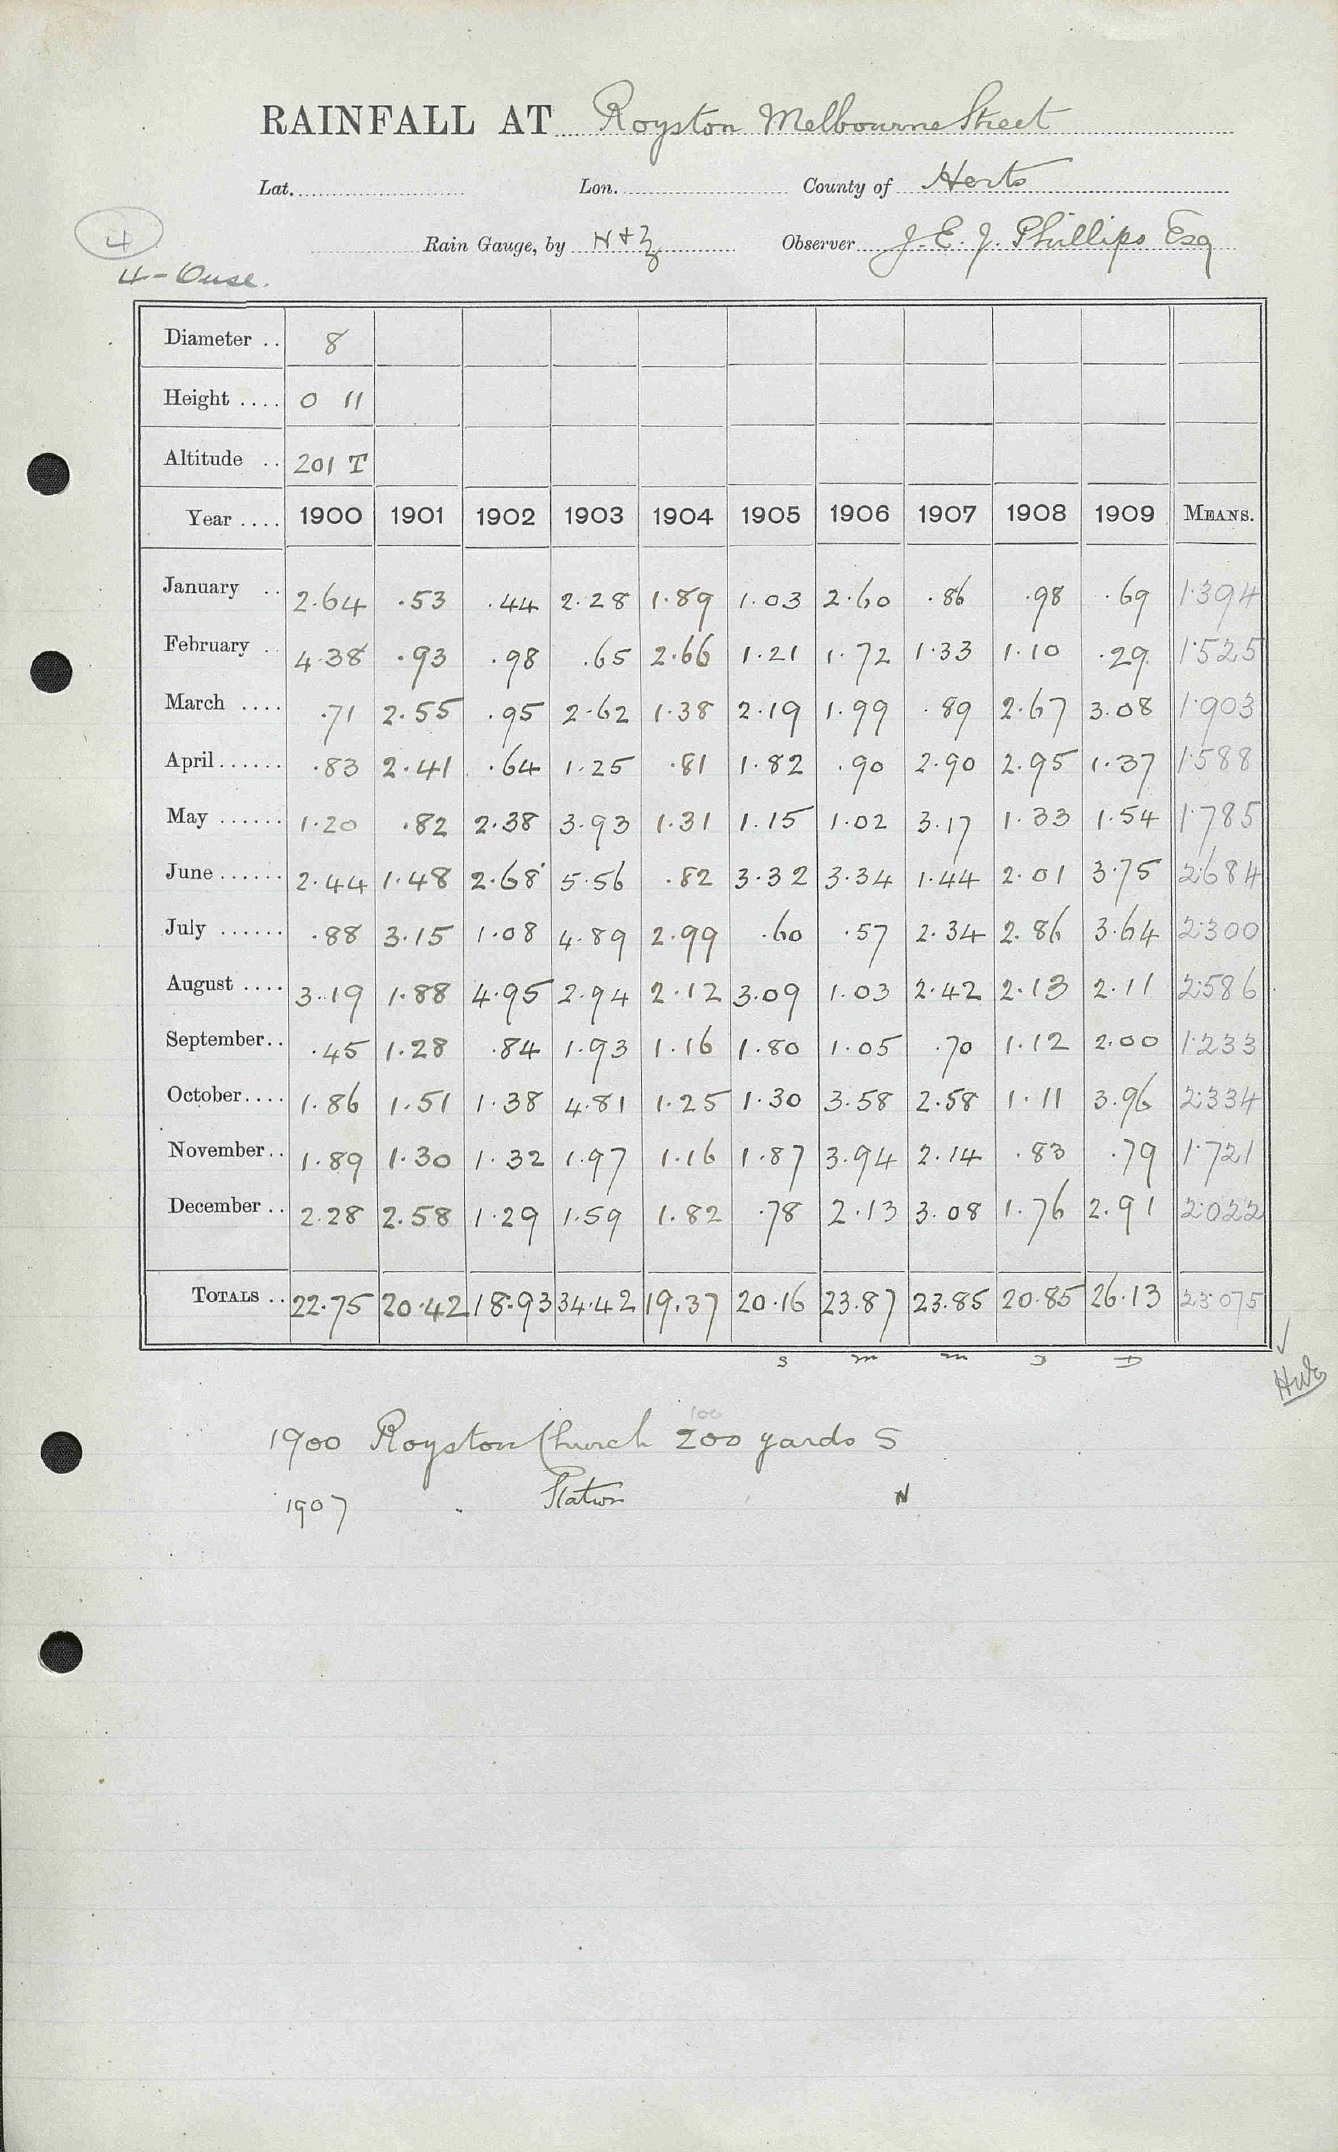 RAINFALL AT Royston Melbourne Street
Lat. Lon. County of Herts
4
Rain Gauge, by N+Z Observer J. E. J. Phillips Esq
4 - Ouse.
Diameter .. 8
Height .... 0 11
Altitude .. 201 T
Year .... 1900 1901 1902 1903 1904 1905 1906 1907 1908 1909 MEANS.
January .. 2.64 .53 .44 2.28 1.89 1.03 2.60 .86 .98 .69 1.394
February .. 4.38 .93 .98 .65 2.66 1.21 1.72 1.33 1.10 .29 1.525
March .... .71 2.55 .95 2.62 1.38 2.19 1.99 .89 2.67 3.08 1.903
April ...... .83 2.41 .64 1.25 .81 1.82 .90 2.90 2.95 1.37 1.588
May ...... 1.20 .82 2.38 3.93 1.31 1.15 1.02 3.17 1.33 1.54 1.785
June ...... 2.44 1.48 2.68 5.56 .82 3.32 3.34 1.44 2.01 3.75 2.684
July ...... .88 3.15 1.08 4.89 2.99 .60 .57 2.34 2.86 3.64 2.300
August .... 3.19 1.88 4.95 2.94 2.12 3.09 1.03 2.42 2.13 2.11 2.586
September .. .45 1.28 .84 1.93 1.16 1.80 1.05 .70 1.12 2.00 1.233
October .... 1.86 1.51 1.38 4.81 1.25 1.30 3.58 2.58 1.11 3.96 2.334
November .. 1.89 1.30 1.32 1.97 1.16 1.87 3.94 2.14 .83 .79 1.721
December .. 2.28 2.58 1.29 1.59 1.82 .78 2.13 3.08 1.76 2.91 2.022
TOTALS .. 22.75 20.42 18.93 34.42 19.37 20.16 23.87 23.85 20.85 26.13 23.075
100
1900 Royston Church 200 yards S
1907 Station N